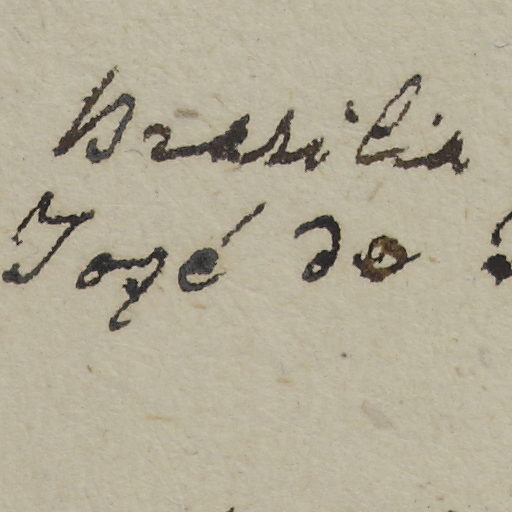 Brasilia
Jozé do